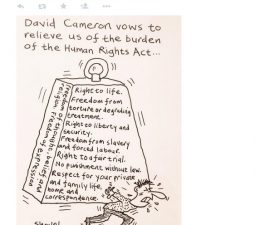 David Cameron vows to
relieve us of the burden
of the Human Rights Act...
freedom of thought, belief and
religion. freedom of expression
Right to life.
Freedom from
torture or degrading
treatment.
Right to liberty and
security.
Freedom from slavery
and forced labour.
Right to a fair trial.
No punishment without law.
Respect for your private
and family life,
home and
correspondence.